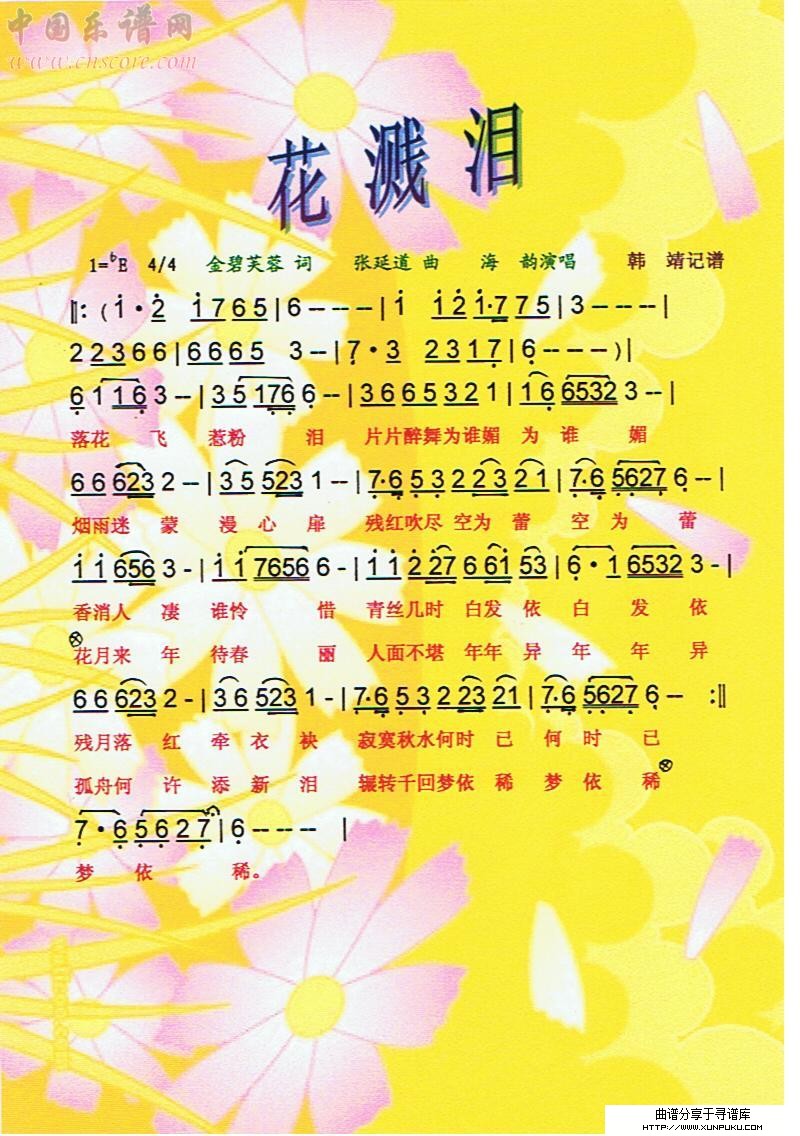 中国乐谱网
www.cnscore.com
花溅泪
1=♭E 4/4 金碧芙蓉 词 张延道 曲 海 韵演唱 韩 靖记谱
‖:( i·2 i 7 6 5 | 6 -- -- -- | i i 2 i·7 7 5 | 3 -- -- -- |
2 2 3 6 6 | 6 6 6 5 3 -- | 7·3 2 3 1 7 | 6 -- -- -- )|
6 1 1 6 3 -- | 3 5 1 7 6 6 -- | 3 6 6 5 3 2 1 | 1 6 6 5 3 2 3 -- |
落花 飞 惹粉 泪 片片醉舞为谁媚 为 谁 媚
6 6 6 2 3 2 -- | 3 5 5 2 3 1 -- | 7·6 5 3 2 2 3 2 1 | 7·6 5 6 2 7 6 -- |
烟雨迷 蒙 漫 心 扉 残红吹尽 空为 蕾 空 为 蕾
i i 6 5 6 3 - | i i 7 6 5 6 6 - | i i 2 2 7 6 6 i 5 3 | 6·1 6 5 3 2 3 - |
香消人 凄 谁怜 惜 青丝几时 白发 依 白 发 依
花月来 年 待春 丽 人面不堪 年年 异 年 年 异
6 6 6 2 3 2 - | 3 6 5 2 3 1 - | 7·6 5 3 2 2 3 2 1 | 7·6 5 6 2 7 6 -- :‖
残月落 红 牵 衣 袂 寂寞秋水何时 已 何 时 已
孤舟何 许 添 新 泪 辗转千回梦依 稀 梦 依 稀
7·6 5 6 2 7 | 6 -- -- -- |
梦 依 稀。
曲谱分享于寻谱库
HTTP://WWW.XUNPUKU.COM